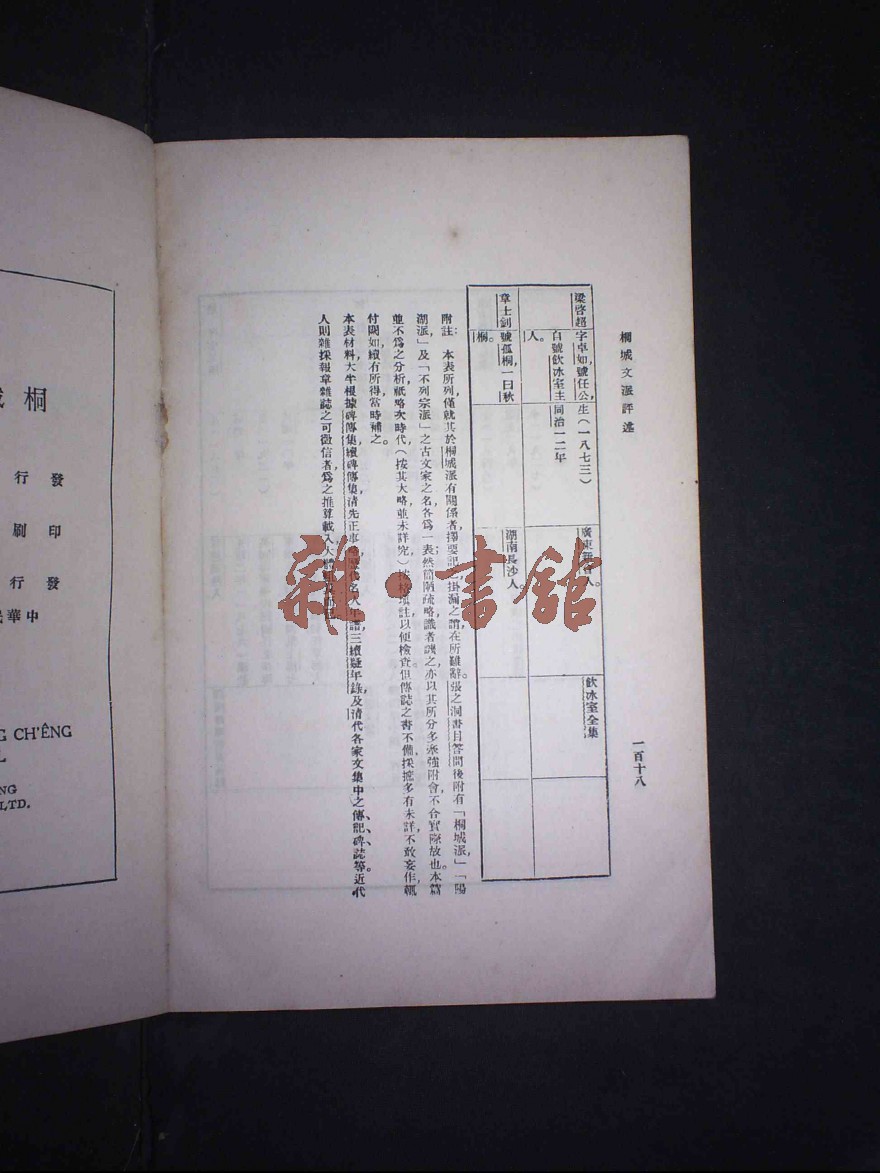 桐城文派評述
一百十八
梁啓超
字卓如，號任公，
自號飲冰室主
人。
生（一八七三）
同治一二年
廣東新會人。
飲冰室全集
章士釗
號孤桐，一曰秋
桐。
湖南長沙人
附註：本表所列，僅就其於桐城派有關係者，擇要記之，掛漏之譜，在所難辭。張之洞書目答問後附有「桐城派」「陽
湖派」及「不列宗派」之古文家之名各爲一表，然簡陋疏略，識者譏之，亦以其所分多牽強附會，不合實際故也。本篇
並不爲之分析，祇略次時代（按其大略並未詳究）按格填註，以便檢查。但傳誌之書不備，採摭多有未詳，不敢妄作，輒
付闕如，續有所得，當時補之。
本表材料，大半根據碑傳集，續碑傳集，清先正事略，歷代名人年譜，三續疑年錄，及清代各家文集中之傳記、碑誌等。近代
人則雜採報章雜誌之可徵信者，爲之推算載入，大體
雜·書館
桐
發行
印刷
發行
中華
G CH'ÊNG
NG
LTD.